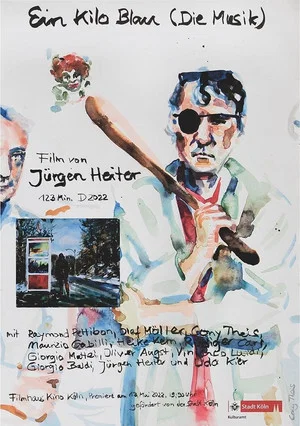 Ein Kilo Blau (Die Musik)
Film von
Jürgen Heiter
123 Min. D 2022
mit Raymond Pettibon, Olaf Möller, Gerry Theis,
Maurizio Heike Kern, Rüdiger Carl,
Giorgio Oliver Augst,
Giorgio Baldi, Jürgen Heiter und Udo Kier
Filmhaus Kino Köln, Premiere am Mai 2022,
gefördert von der Stadt Köln
Stadt Köln
Kulturamt